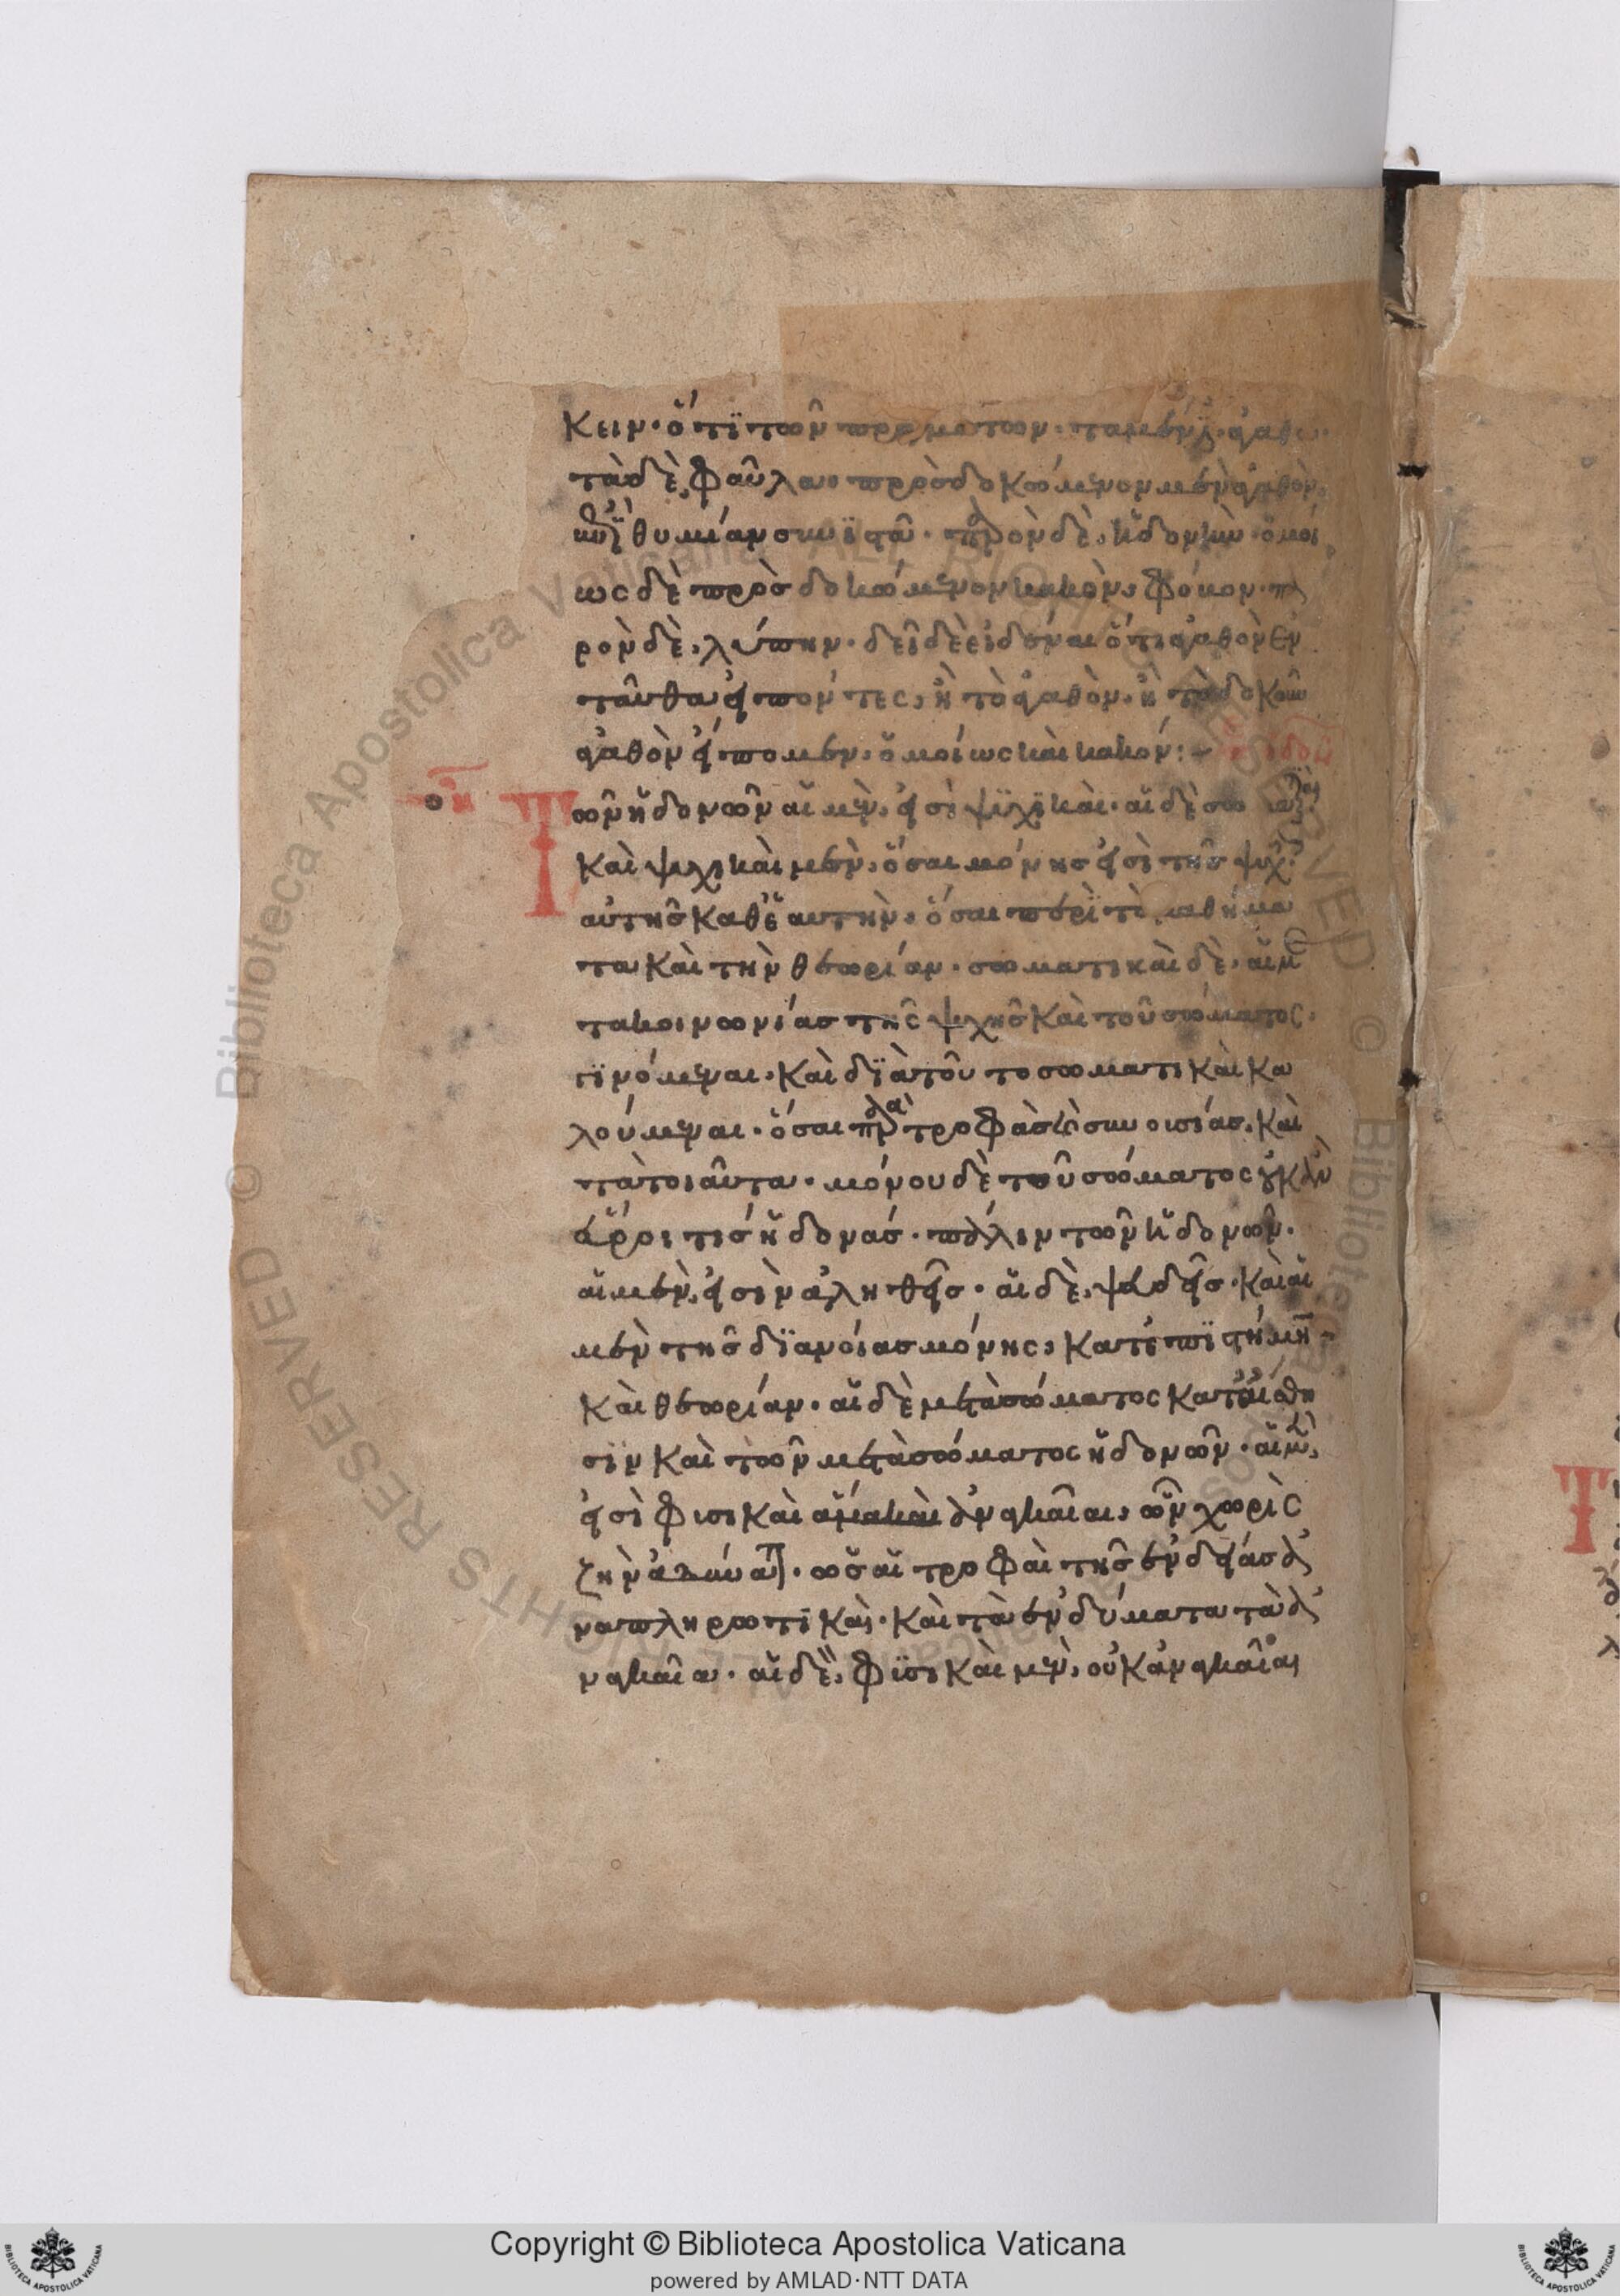 κειν· ὅτι τῶν πραγμάτων· τὰ μέν ἐστιν ἀγαθά·
τὰ δὲ, φαῦλα· προσδοκώμενον μὲν ἀγαθὸν,
ἐπιθυμίαν συνιστᾶ· παρὸν δὲ, ἡδονὴν· ὁμοί
ως δὲ προσδοκώμενον κακὸν, φόβον· πα
ρὸν δὲ, λύπην· δεῖ δὲ εἰδέναι ὅτι ἀγαθὸν ἐν
ταῦθα εἰπόντες, ἢ τὸ ἀγαθὸν, ἢ τὸ δοκοῦν
ἀγαθὸν εἴπομεν· ὁμοίως καὶ κακόν:-
Τῶν ἡδονῶν αἱ μὲν, εἰσὶ ψυχικαὶ· αἱ δὲ σωματικαὶ·
καὶ ψυχικαὶ μὲν, ὅσαι μόνης εἰσὶ τῆς ψυχῆς
αὐτῆς καθ' ἑαυτὴν, ὅσαι περὶ τὰ μαθήμα
τα καὶ τὴν θεωρίαν· σωματικαὶ δὲ, αἱ με
τὰ κοινωνίας τῆς ψυχῆς καὶ τοῦ σώματος·
γινόμεναι· καὶ διὰ τοῦτο σωματικαὶ κα
λούμεναι· ὅσαι περὶ τροφὰς καὶ συνουσίας, καὶ
τὰ τοιαῦτα· μόνου δὲ τοῦ σώματος οὐκ ἂν
εὕροι τις ἡδονάς· πάλιν τῶν ἡδονῶν·
αἱ μὲν, εἰσὶν ἀληθεῖς· αἱ δὲ, ψευδεῖς· καὶ αἱ
μὲν τῆς διανοίας μόνης, κατ' ἐπιστήμην
καὶ θεωρίαν· αἱ δὲ μετὰ σώματος κατ' αἴσθη
σιν καὶ τῶν μετὰ σώματος ἡδονῶν· αἱ μὲν,
εἰσὶ φυσικαὶ ἅμα καὶ ἀναγκαῖαι, ὧν χωρὶς
ζῆν ἀδύνατον· ὡς αἱ τροφαὶ τῆς ἐνδείας ἀ
ναπληρωτικαὶ· καὶ τὰ ἐνδύματα τὰ ἀ
ναγκαῖα· αἱ δὲ, φυσικαὶ μὲν, οὐκ ἀναγκαῖαι
Copyright © Biblioteca Apostolica Vaticana
powered by AMLAD·NTT DATA